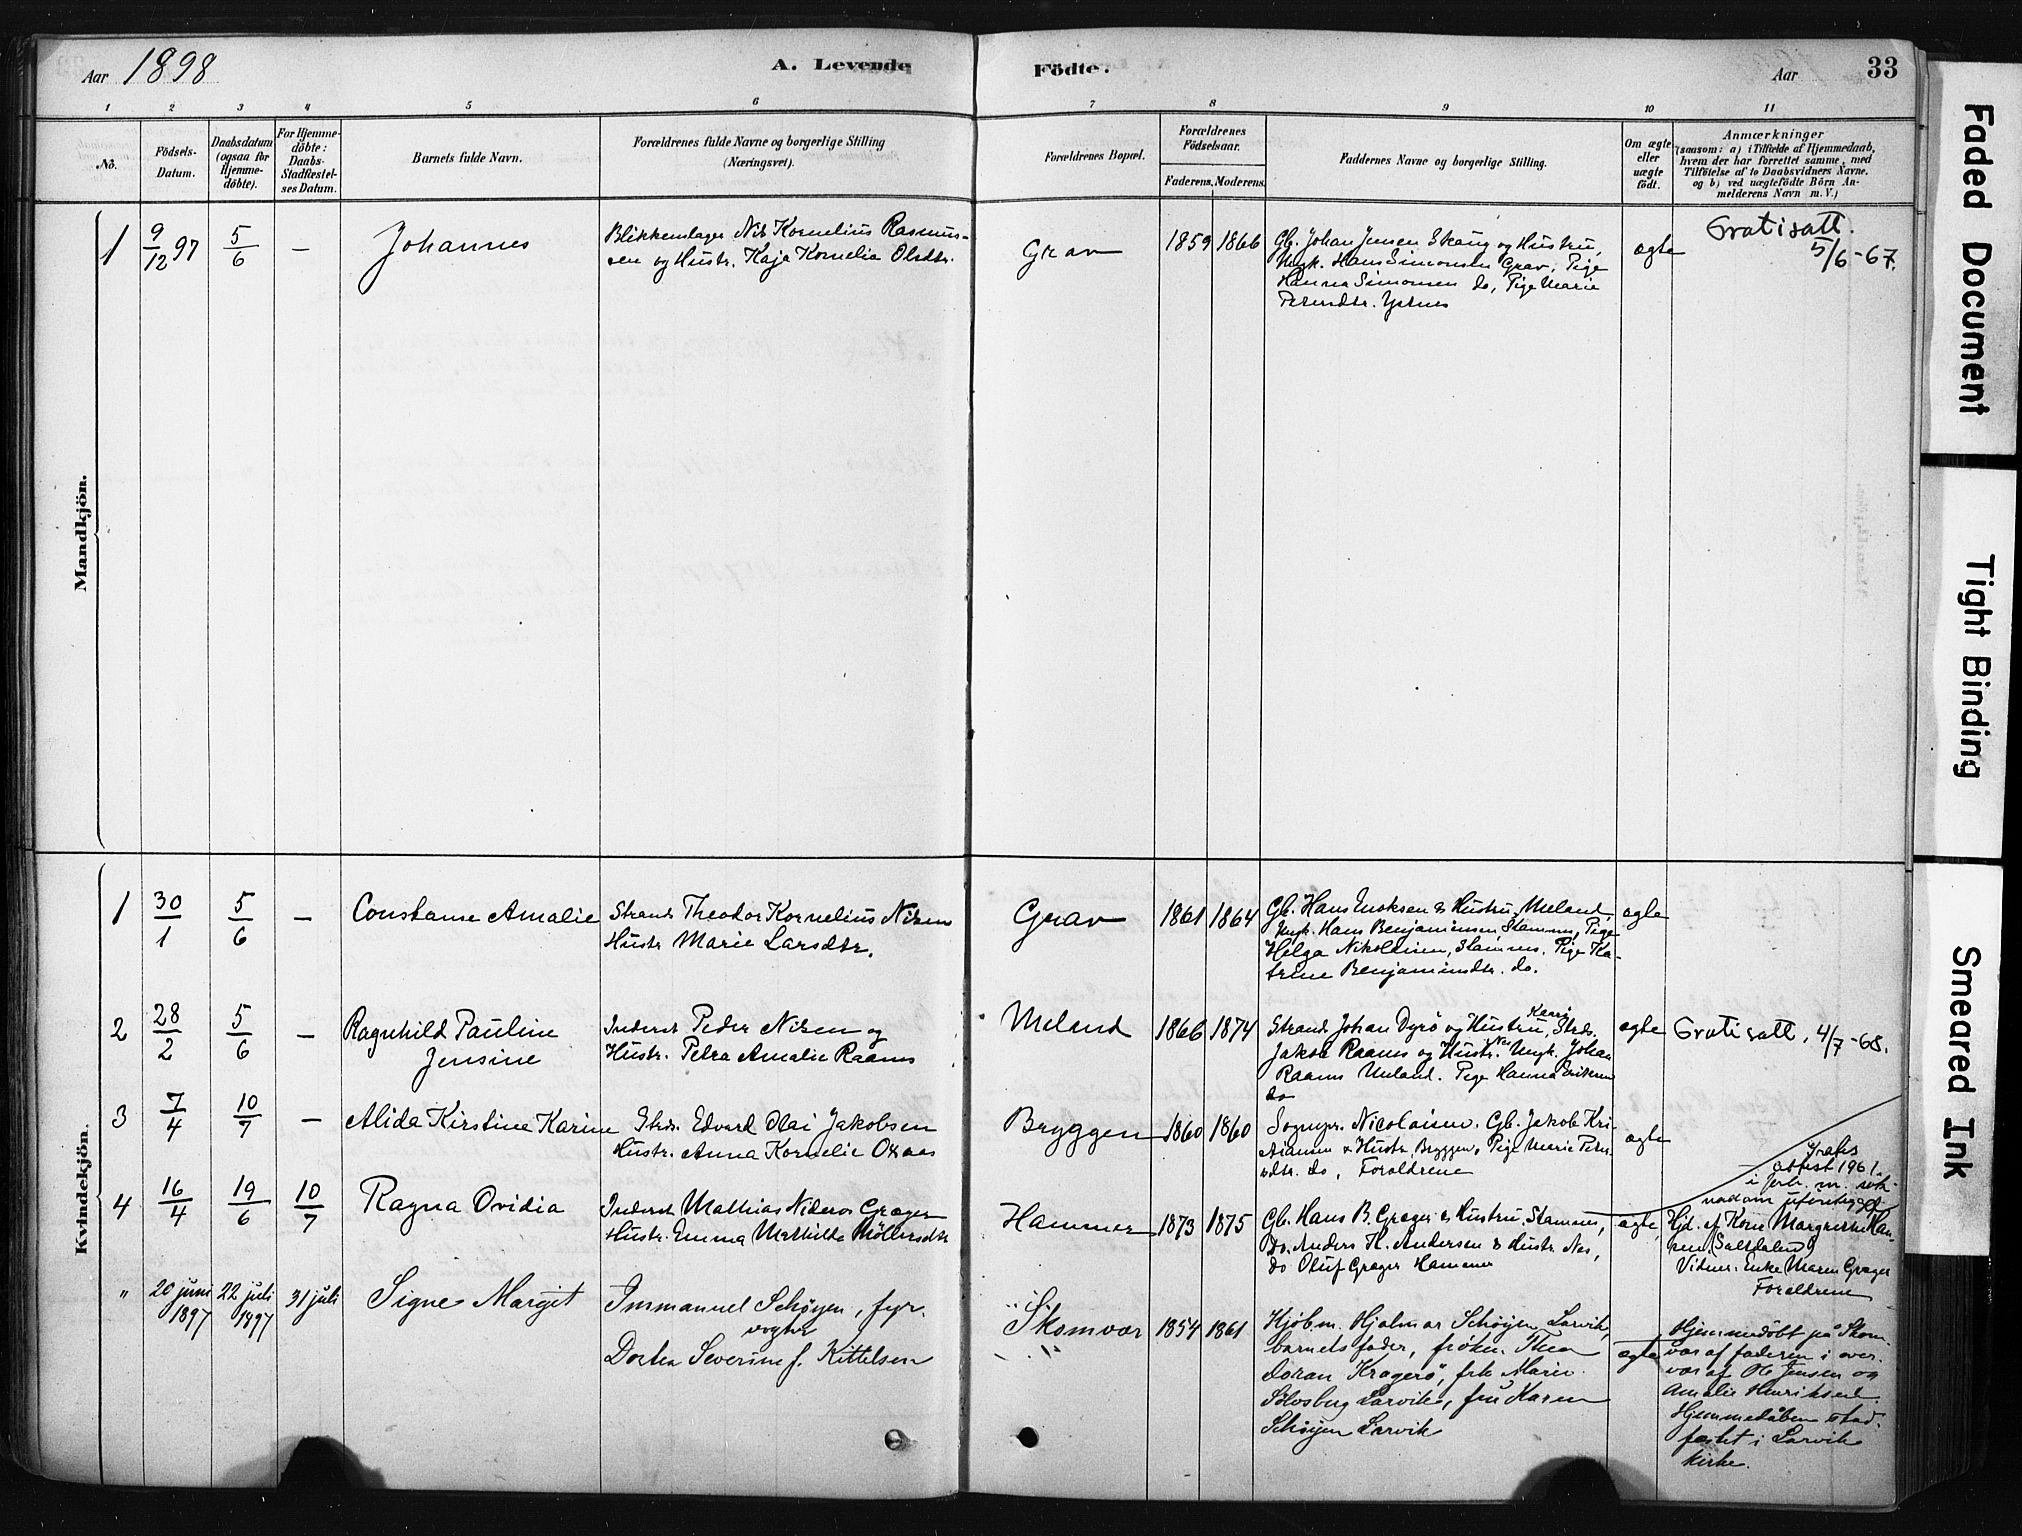 Aar 1898
A. Levende Födte.
Aar
33
1 2 3 4 5 6 7 8 9 10 11
No.
Födsels-Datum.
Daabsdatum (ogsaa for Hjemme-döbte).
For Hjemme-döbte: Daabs-Stadfæstel-ses Datum.
Barnets fulde Navn.
Forældrenes fulde Navne og borgerlige Stilling (Næringsvei).
Forældrenes Bopæl.
Forældrenes Födselsaar.
Faderens. Moderens.
Faddernes Navne og borgerlige Stilling.
Om ægte eller uægte födt.
Anmærkninger
(saasom: a) i Tilfælde af Hjemmedaab,
hvem der har forrettet samme, med
Tilföielse af to Daabsvidners Navne.
og b) ved uægtefödte Börn An-
melderens Navn m. V.)
Mandkjön.
1 9/12 97 5/6 — Johannes
Blikkenslager Nils Kornelius Rasmus-
sen og Hustr. Kaja Kornelia Olsdtr.
Grav 1859 1866
Gb. Johan Jensen Skaug og Hustru,
Ungk. Hans Simonsen Grav, Pige
Hanna Simonsen do, Pige Marie
ægte
Gratisatt.
5/6-67.
Kvindekjön.
1 30/1 5/6 — Constanse Amalie
Strands. Theodor Kornelius Nilsen
Hustr Marie Larsdtr.
Grav 1861 1864
Gb. Hans Enoksen & Hustru Meland,
Ungk. Hans Benjaminsen, Stamnes, Pige
Helga Nikolaisen, Stamnes. Pige Ka-
trine Benjaminsdtr. do.
ægte
2 28/2 5/6 — Ragnhild Pauline
Jensine
Inderst Peder Nilsen og
Hustr. Petra Amalie Raanes
Meland 1866 1874
Strands. Johan Dyrö og Hustru, Strds.
Jakob Raanes og Hustr. Ungk. Johan
Raanes Meland. Pige Hanna Eriksen
do
ægte
Gratisatt, 4/7-68.
3 7/4 10/7 — Alida Kirstine Karine
Strds. Edvard Olai Jakobsen
Hustr. Anna Kornelie Olsdtr
Bryggen 1860 1860
Sognepr. Nicolaisen. Gb. Jakob Kri-
stiansen & Hustr. Bryggen, Pige Marie Peter-
sdtr. do, Forældrene
ægte
Gratis
attest 1961
4 16/4 19/6 10/7 Ragna Ovidia
Inderst Mathias Nideros Græger
Hustr. Emma Mathilde Möllersdtr
Hammer 1873 1875
Gb. Hans B. Græger & Hustru, Stamnes,
Do. Anders K. Andersen & Hustr. Nes,
do Oluf Græger Hammer
ægte,
Hjd. af Kone Margrethe Han-
sen (Saltdalen)
Vidner: Enke Maren Græger
Forældrene
" 20 juni 1897 22 juli 1897 31 juli Signe Margit
Immanuel Schøyen, fyr-
vogter
Dortea Severine f. Kittelsen
Skomvær 1854 1861
Kjöbm. Hjalmar Schøyen Larvik,
barnets fader, frøken Thea
Johan Kragerö, frk Marie
Larvik, fru Karen
Schøyen Larvik
ægte
Hjemmedöbt på Skom-
vær af faderen i over-
vær af Ole Jensen og
Amalie Henriksen.
Hjemmedåben stad-
fæstet i Larvik
kirke.
Faded Document
Tight Binding
Smeared Ink